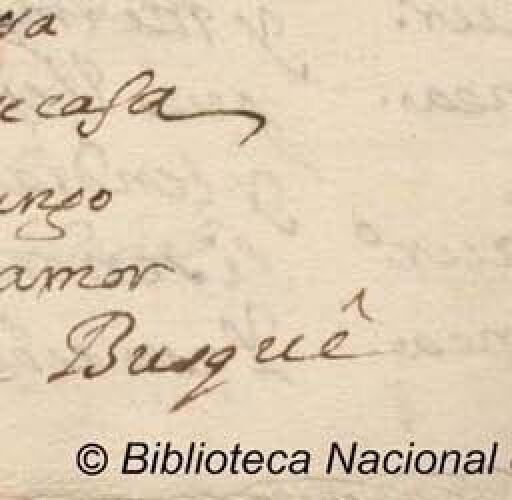 sa
ecasa
ungo
amor
Busquê
© Biblioteca Nacional